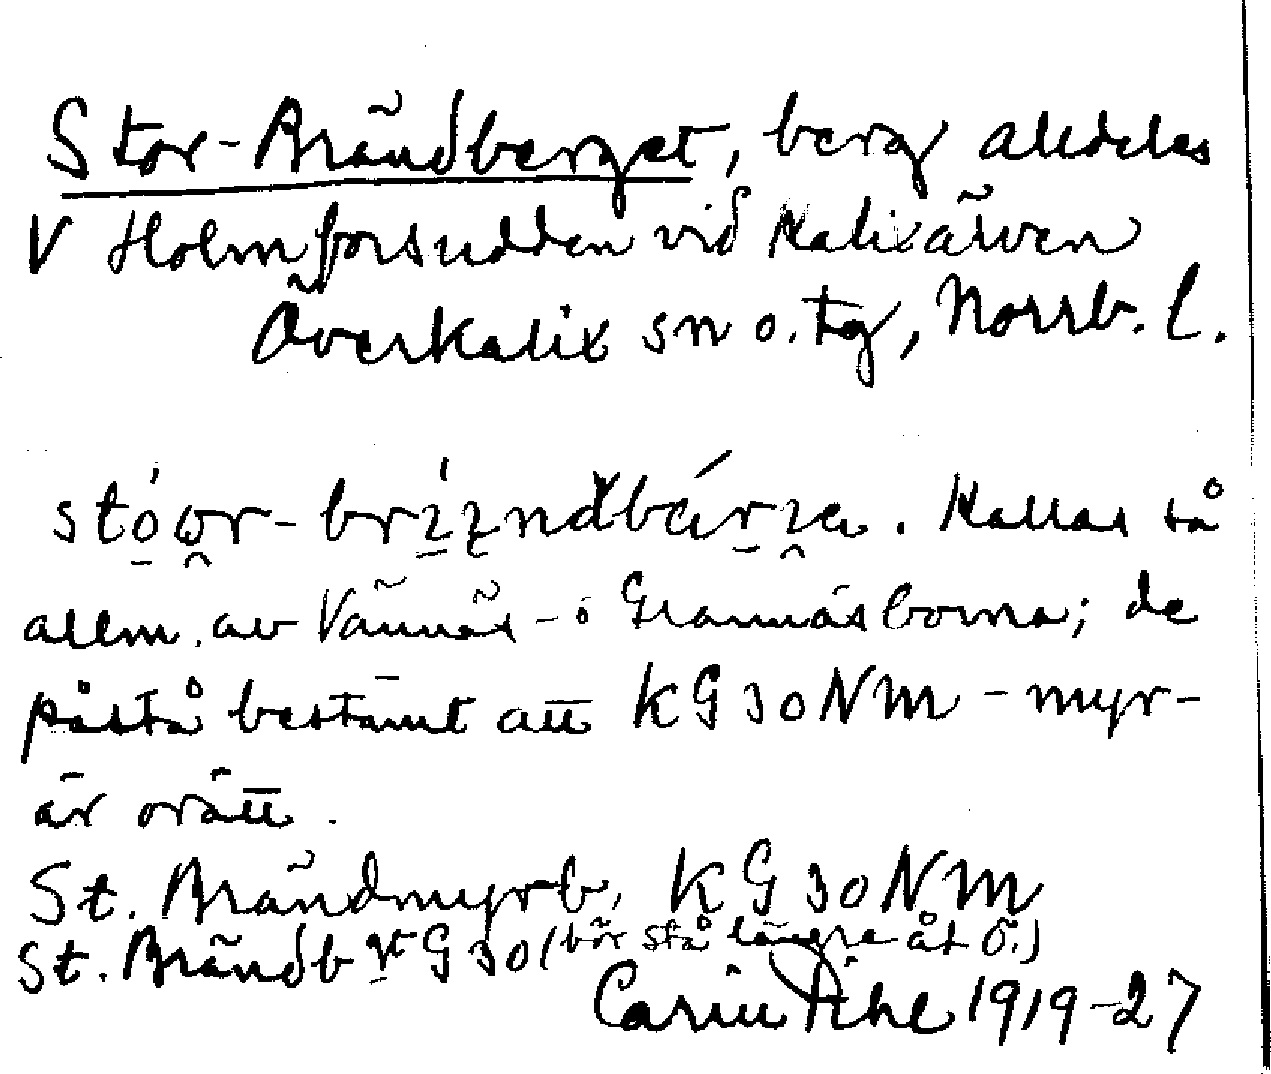 Stor-Brändberget, berg alldeles
V Holmforsudden vid Kalixälven
Överkalix sn o. tg, Norrb. l.
Kallas så
allm. av Vännäs- o Grannäsborna; de
påstå bestämt att KG 30 NM -myr-
är orätt.
St. Brändmyrb, KG 30 NM
St. Brändbgt G 30 (bör stå längre åt Ö.)
Carin Pihl 1919-27